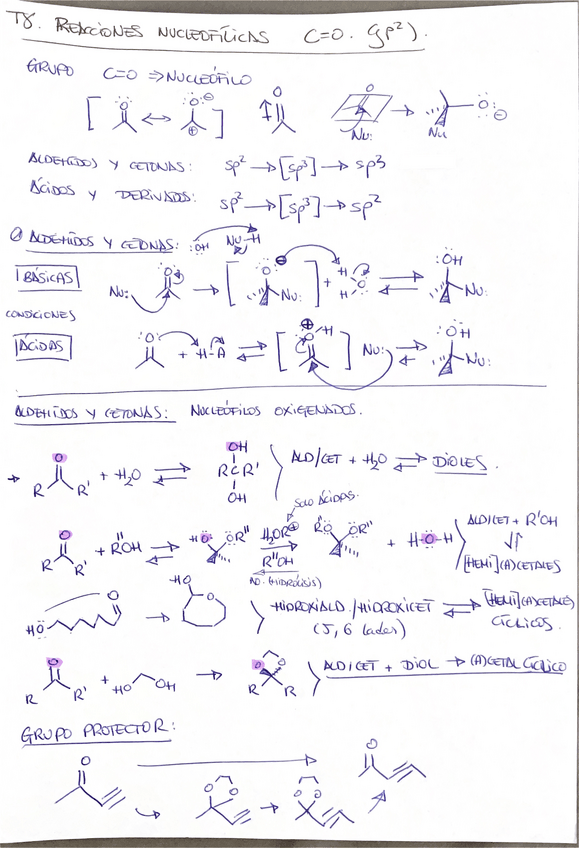 T8. REACCIONES NUCLEOFÍLICAS C=O. (sp²).
GRUPO C=O ⇒ NUCLEÓFILO
Nu: Nu
ALDEHÍDOS Y CETONAS: sp² → [sp³] → sp³
ÁCIDOS Y DERIVADOS: sp² → [sp³] → sp²
ALDEHÍDOS Y CETONAS: :ÖH Nu-H
BÁSICAS
Nu: O Nu: + H O H ⇌ :ÖH Nu:
CONDICIONES
ÁCIDAS
O + H-A ⇌ [ O-H ] Nu: ⇌ ÖH Nu:
ALDEHÍDOS Y CETONAS: NUCLEÓFILOS OXIGENADOS.
R R' O + H₂O ⇌ OH RCR' OH ALD/CET + H₂O ⇌ DIOLES.
SOLO ÁCIDAS.
R R' O + R̈OH ⇌ HÖ ÖR" H₂OR⊕ R"OH RÖ ÖR" + H-O-H ALD/CET + R'OH
AD. (HIDRÓLISIS)
[HEMI](A)CETALES
HÖ O → HO O HIDROXIALD./HIDROXICET ⇌ [HEMI](A)CETALES
(5, 6 lados) CÍCLICOS.
R R' O + HO OH → O O R R ALD/CET + DIOL → (A)CETAL CÍCLICO
GRUPO PROTECTOR:
O O
O O O O